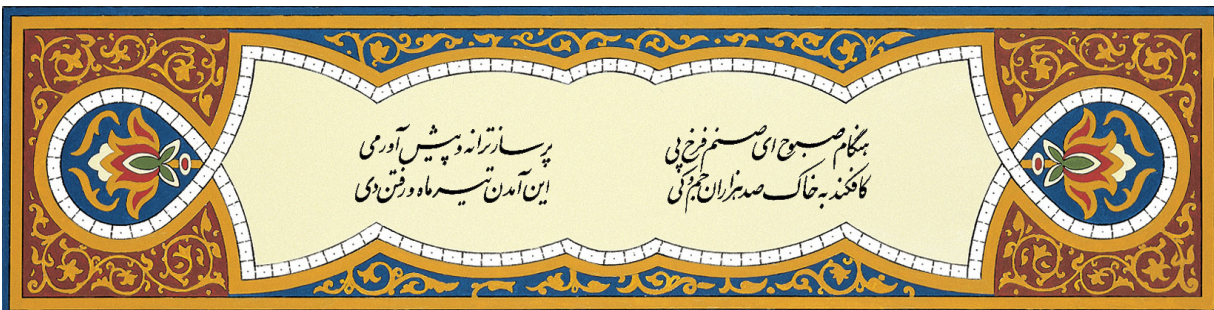 هنگام صبوح ای صنم فرخ پی پر ساز ترانه و پیش آور می
کافکند به خاک صد هزاران جم و کی این آمدن تیر ماه و رفتن دی